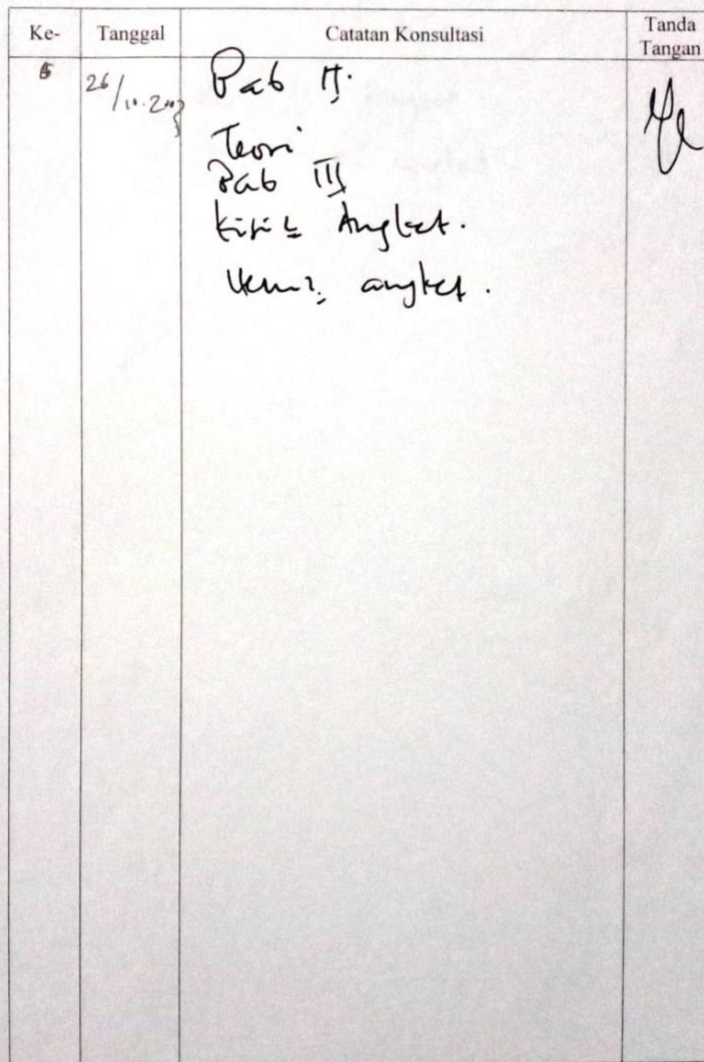 Ke- Tanggal Catatan Konsultasi Tanda Tangan
26/10.
Bab II.
Teori
Bab III
Angket.
angket.